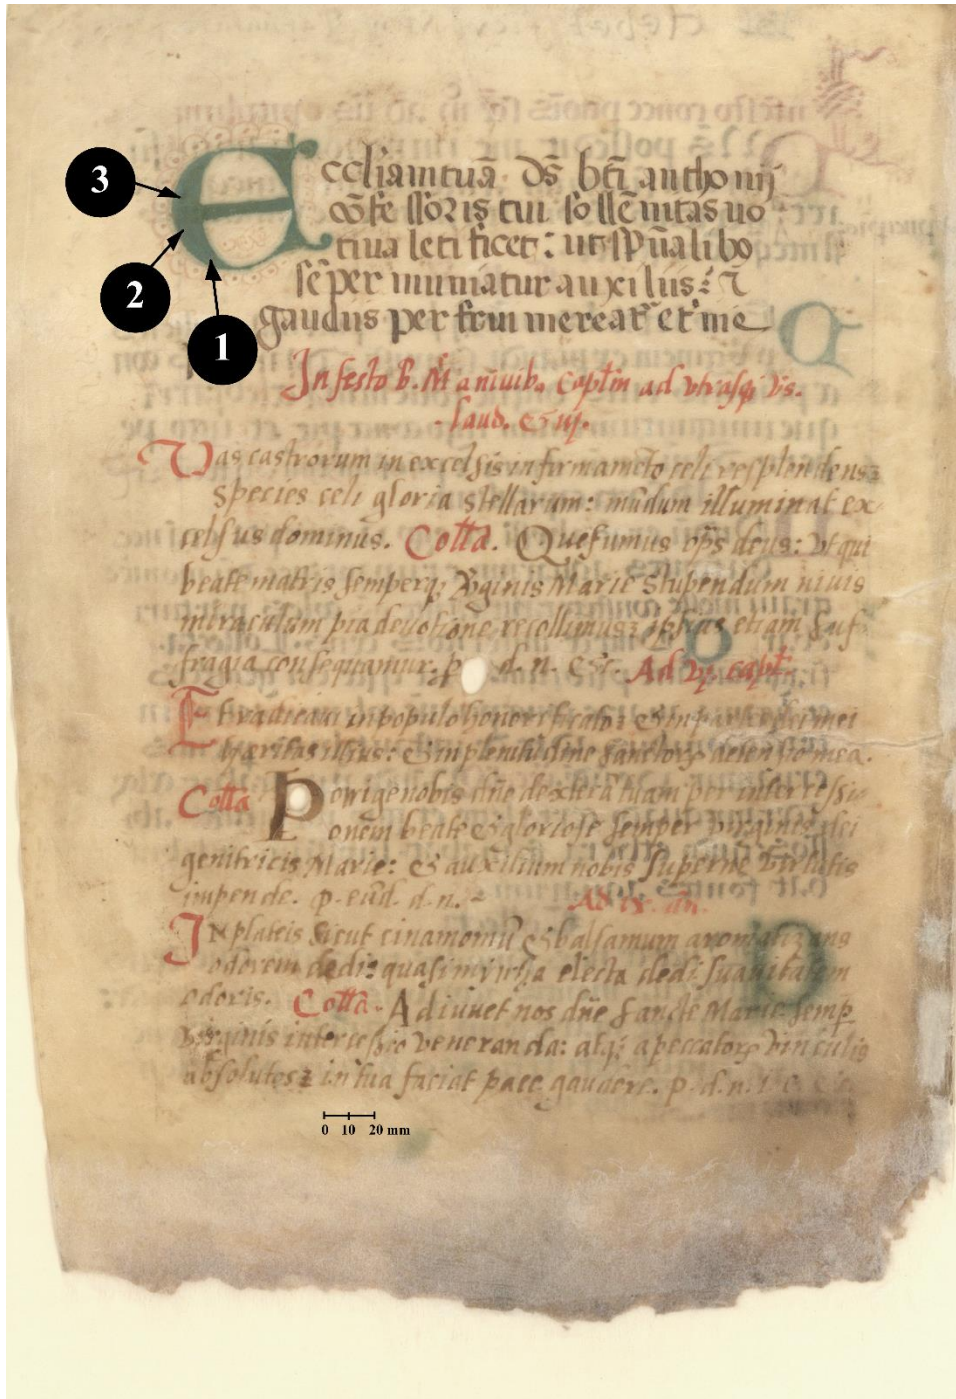 3
2
1
Eccliam tuā d̄s bt̄i anthonij
cōfessoris tui sollēnitas uo
tiua letificet: ut sp̄ualibo
sēper muniatur auxiliis: ⁊
gaudiis perfrui mereat̄ et̄
In festo B. M. a niuib. Captm ad vtrasq; vs.
laud. & iij.
Vas castrorum in excelsis in firmamēto celi resplendens
species celi gloria stellarum: mūdum illuminat ex
celsus dominus. Colta. Quesumus op̄s deus: vt qui
beate matris semperq; Virginis Marie stupendum niuis
miraculum pia deuotione recolimus: ipsius etiam suf
fragia consequamur. p d. n. &c. Ad capt.
Et radicaui in populo honorificato: & in partes dei mei
hereditas illius: & in plenitudine sanctorꝝ detentio mea.
Colta Porrige nobis dn̄e dexterā tuam per intercessi
onem beate & gloriose semper virginis dei
genitricis Marie: & auxilium nobis superne virtutis
impende. p. eūd. d. n. Ad ix. an.
In plateis sicut cinamomū & balsamum aromatizans
odorem dedi: quasi mirrha electa dedi suauitatem
odoris. Colta. Adiuuet nos dn̄e sancte Marie semp
virginis intercessio veneranda: atq; a peccatorꝝ vinculis
absolutos: in tua faciat pace gaudere. p. d. n.
0 10 20 mm